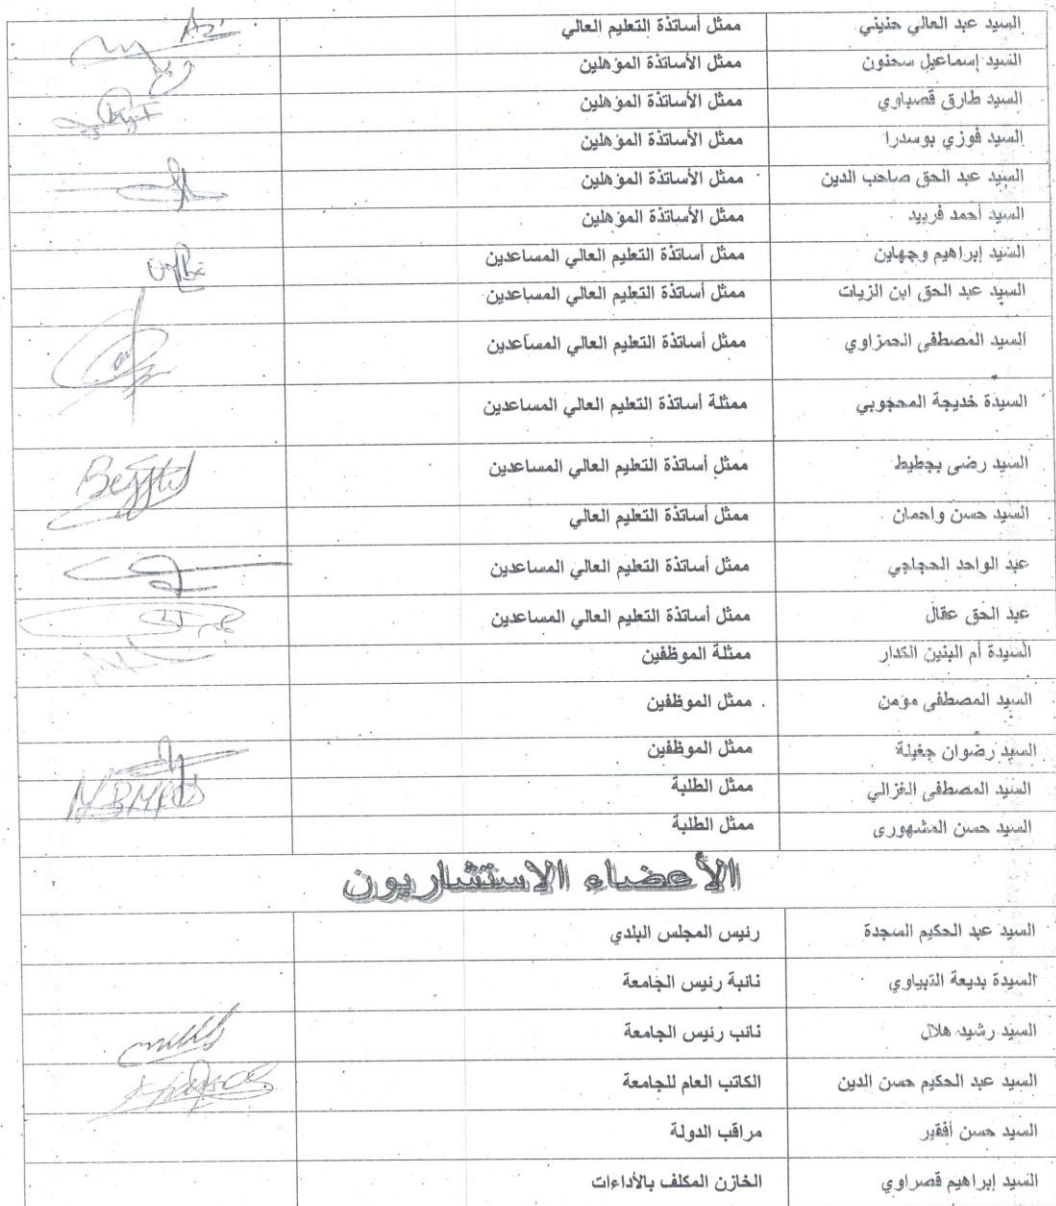 السيد عبد العالي حنيني ممثل أساتذة التعليم العالي
السيد إسماعيل سحنون ممثل الأساتذة المؤهلين
السيد طارق قصباوي ممثل الأساتذة المؤهلين
السيد فوزي بوسدرا ممثل الأساتذة المؤهلين
السيد عبد الحق صاحب الدين ممثل الأساتذة المؤهلين
السيد أحمد فريد ممثل الأساتذة المؤهلين
السيد إبراهيم وجهاين ممثل أساتذة التعليم العالي المساعدين
السيد عبد الحق ابن الزيات ممثل أساتذة التعليم العالي المساعدين
السيد المصطفى الحمزاوي ممثل أساتذة التعليم العالي المساعدين
السيدة خديجة المحجوبي ممثلة أساتذة التعليم العالي المساعدين
السيد رضى بجطيط ممثل أساتذة التعليم العالي المساعدين
السيد حسن واحمان ممثل أساتذة التعليم العالي
عبد الواحد الحجاجي ممثل أساتذة التعليم العالي المساعدين
عبد الحق عقال ممثل أساتذة التعليم العالي المساعدين
السيدة أم البنين الكدار ممثلة الموظفين
السيد المصطفى مومن ممثل الموظفين
السيد رضوان جغيلة ممثل الموظفين
السيد المصطفى الغزالي ممثل الطلبة
السيد حسن المشهوري ممثل الطلبة
الأعضاء الاستشاريون
السيد عبد الحكيم السجدة رئيس المجلس البلدي
السيدة بديعة التبياوي نائبة رئيس الجامعة
السيد رشيد هلال نائب رئيس الجامعة
السيد عبد الحكيم حسن الدين الكاتب العام للجامعة
السيد حسن أفقير مراقب الدولة
السيد إبراهيم قصراوي الخازن المكلف بالأداءات